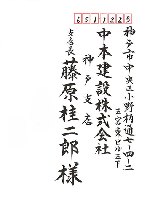 6511225
神戸市中央区小野柄通七-四-二
三宮東ビル三F
中本建設株式会社
神戸支店
支店長
藤原桂二郎様